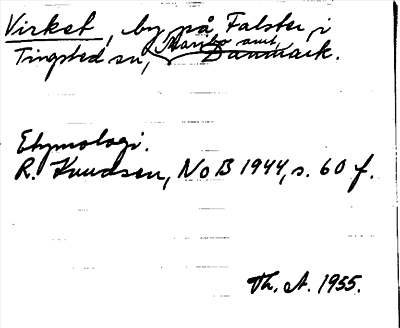 Virket, by på Falster i
Tingsted sn, Maribo amt, Danmark.
Etymologi.
R. Knudsen, NoB 1944, s. 60 f.
Th. A. 1955.